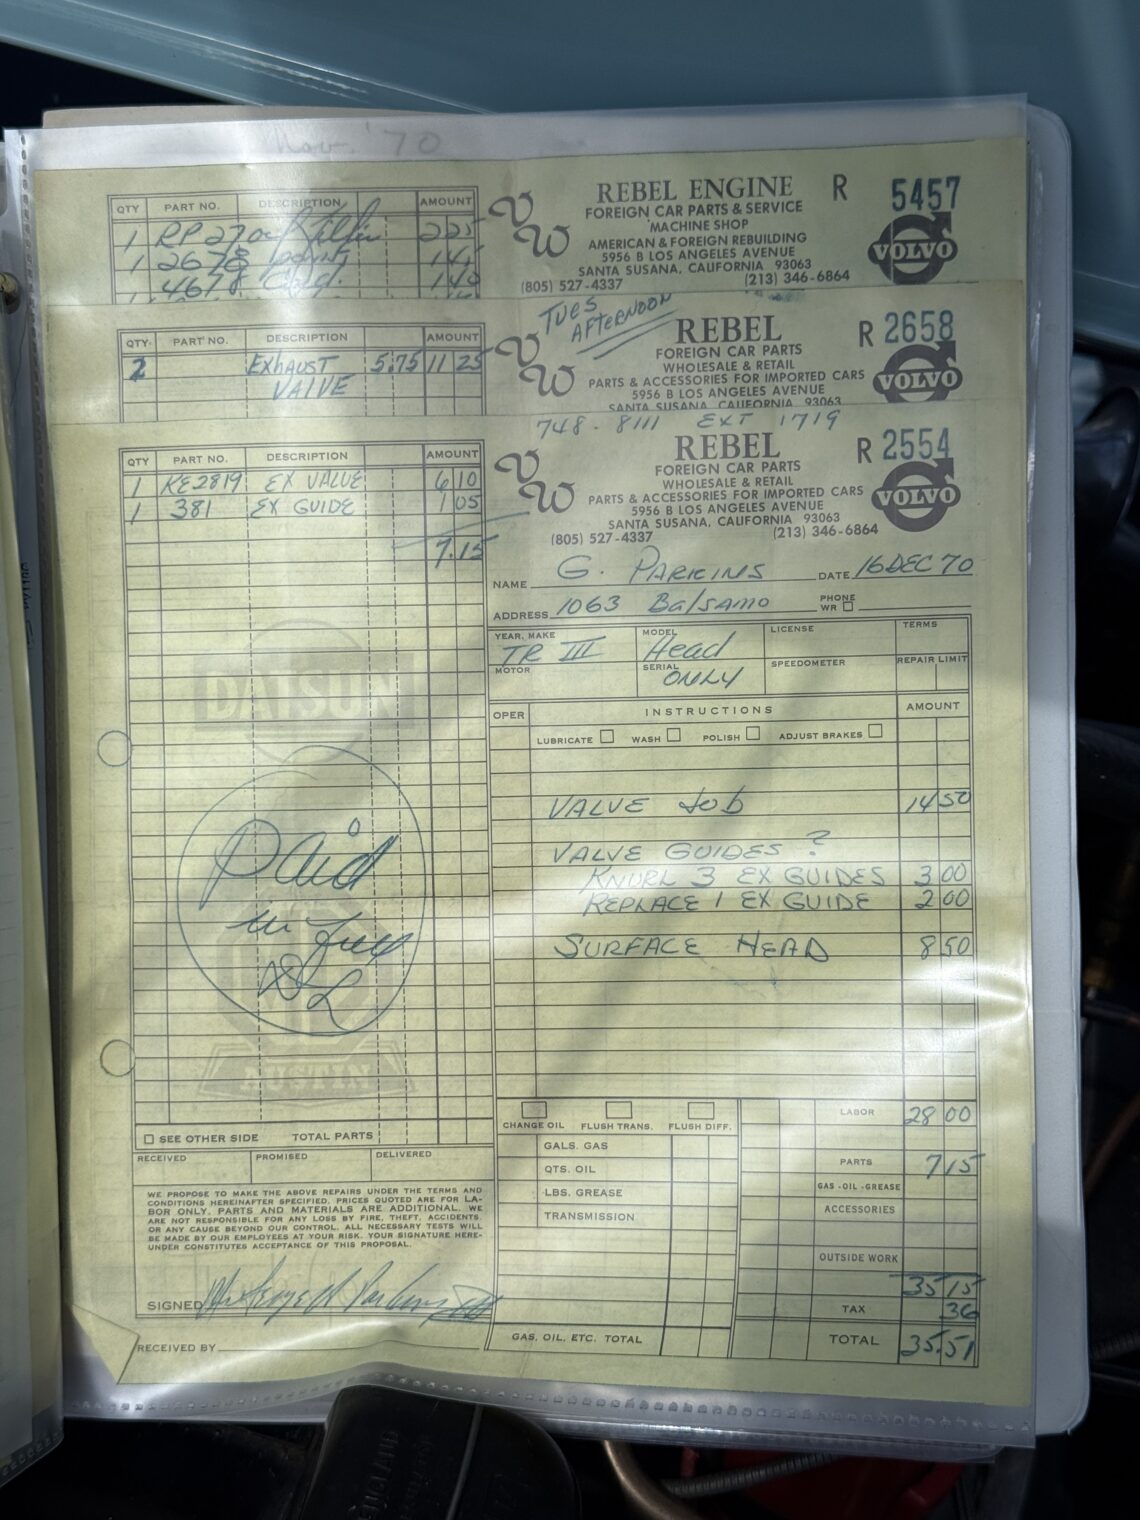 Nov. '70
QTY PART NO. DESCRIPTION AMOUNT
1 RP27 2 25
1 2678
4678 1 40
VW
REBEL ENGINE R 5457
FOREIGN CAR PARTS & SERVICE
MACHINE SHOP
AMERICAN & FOREIGN REBUILDING
5956 B LOS ANGELES AVENUE
SANTA SUSANA, CALIFORNIA 93063
(805) 527-4337 (213) 346-6864
VOLVO
TUES
AFTERNOON
QTY. PART NO. DESCRIPTION AMOUNT
2 EXHAUST 5.75 11 25
VALVE
VW
REBEL R 2658
FOREIGN CAR PARTS
WHOLESALE & RETAIL
PARTS & ACCESSORIES FOR IMPORTED CARS
5956 B LOS ANGELES AVENUE
SANTA SUSANA, CALIFORNIA 93063
VOLVO
748-8111 EXT 1719
VW
REBEL R 2554
FOREIGN CAR PARTS
WHOLESALE & RETAIL
PARTS & ACCESSORIES FOR IMPORTED CARS
5956 B LOS ANGELES AVENUE
SANTA SUSANA, CALIFORNIA 93063
(805) 527-4337 (213) 346-6864
VOLVO
QTY PART NO. DESCRIPTION AMOUNT
1 KE2819 EX VALVE 6 10
1 381 EX GUIDE 1 05
7.15
NAME G. PARKINS DATE 16 DEC 70
ADDRESS 1063 Balsamo PHONE
WR
YEAR, MAKE TR III MODEL Head LICENSE TERMS
MOTOR SERIAL ONLY SPEEDOMETER REPAIR LIMIT
OPER INSTRUCTIONS AMOUNT
LUBRICATE WASH POLISH ADJUST BRAKES
VALVE Job 14 50
VALVE GUIDES ?
KNURL 3 EX GUIDES 3 00
REPLACE 1 EX GUIDE 2 00
SURFACE HEAD 8 50
DATSUN
Paid
in full
DL
MG
AUSTIN
SEE OTHER SIDE TOTAL PARTS
RECEIVED PROMISED DELIVERED
WE PROPOSE TO MAKE THE ABOVE REPAIRS UNDER THE TERMS AND
CONDITIONS HEREINAFTER SPECIFIED. PRICES QUOTED ARE FOR LA-
BOR ONLY. PARTS AND MATERIALS ARE ADDITIONAL. WE
ARE NOT RESPONSIBLE FOR ANY LOSS BY FIRE, THEFT, ACCIDENTS,
OR ANY CAUSE BEYOND OUR CONTROL. ALL NECESSARY TESTS WILL
BE MADE BY OUR EMPLOYEES AT YOUR RISK. YOUR SIGNATURE HERE-
UNDER CONSTITUTES ACCEPTANCE OF THIS PROPOSAL.
SIGNED
RECEIVED BY
CHANGE OIL FLUSH TRANS. FLUSH DIFF.
GALS. GAS
QTS. OIL
LBS. GREASE
TRANSMISSION
GAS, OIL, ETC. TOTAL
LABOR 28 00
PARTS 7 15
GAS-OIL-GREASE
ACCESSORIES
OUTSIDE WORK
35 15
TAX 36
TOTAL 35.51
ENGLAND